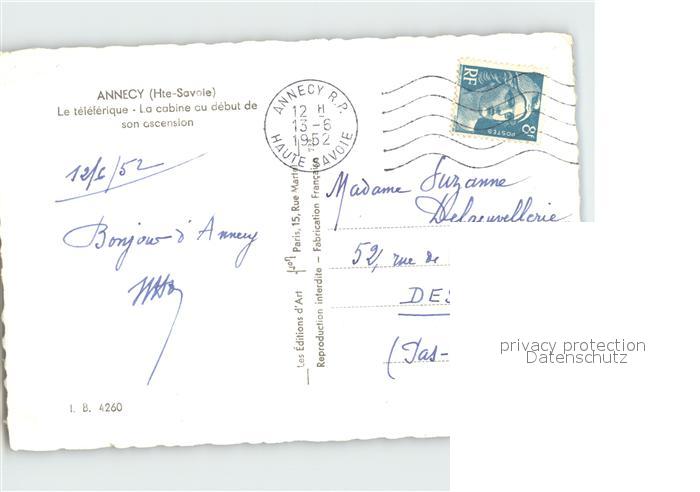 ANNECY (Hte-Savoie)
Le téléférique - La cabine au début de
son ascension
ANNECY R.P.
12 H
13-6
1952
HAUTE SAVOIE
RF
8f
POSTES
12/6/52
Bonjour d'Annecy
Les Editions d'Art Yvon Paris, 15, Rue Martel
Reproduction interdite - Fabrication Française
Madame Suzanne
Delneuvellerie
52, rue de
DES
(Pas-
I. B. 4260
privacy protection
Datenschutz